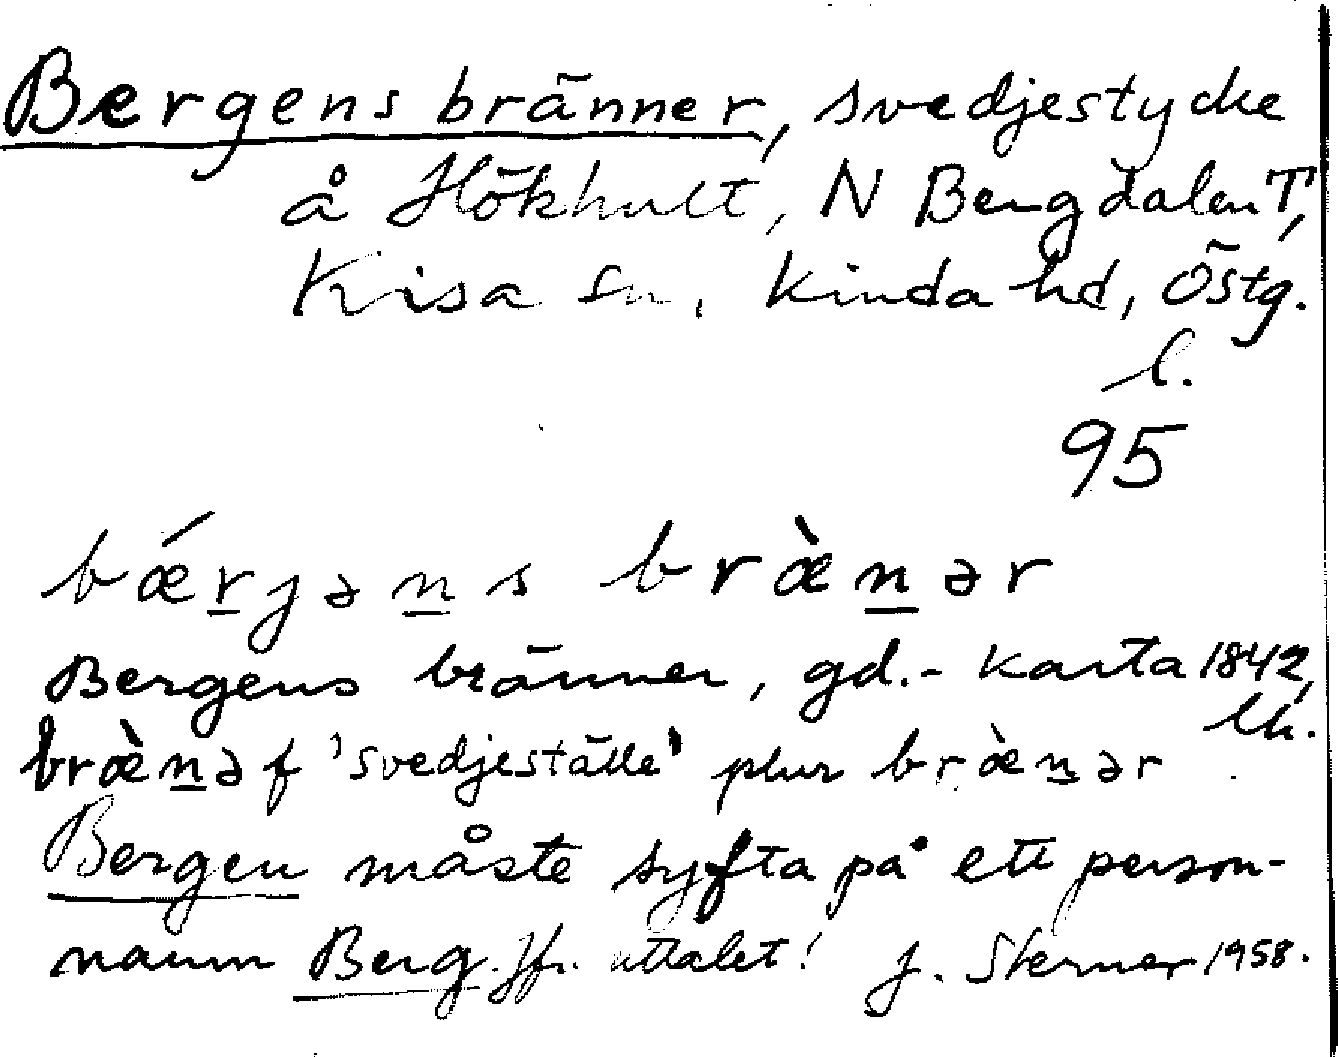 Bergens bränner, svedjestycke
å Hökhult, N Bergdalen T,
Kisa sn, Kinda hd, Östg.
l.
95
bǽrjəns bræ̀nər
Bergens bränner, gd.- Karta 1842,
lk.
bræ̀nə f 'svedjeställe' plur bræ̀nər
Bergen måste syfta på ett person-
namn Berg. Jfr. uttalet! J. Sterner 1958.